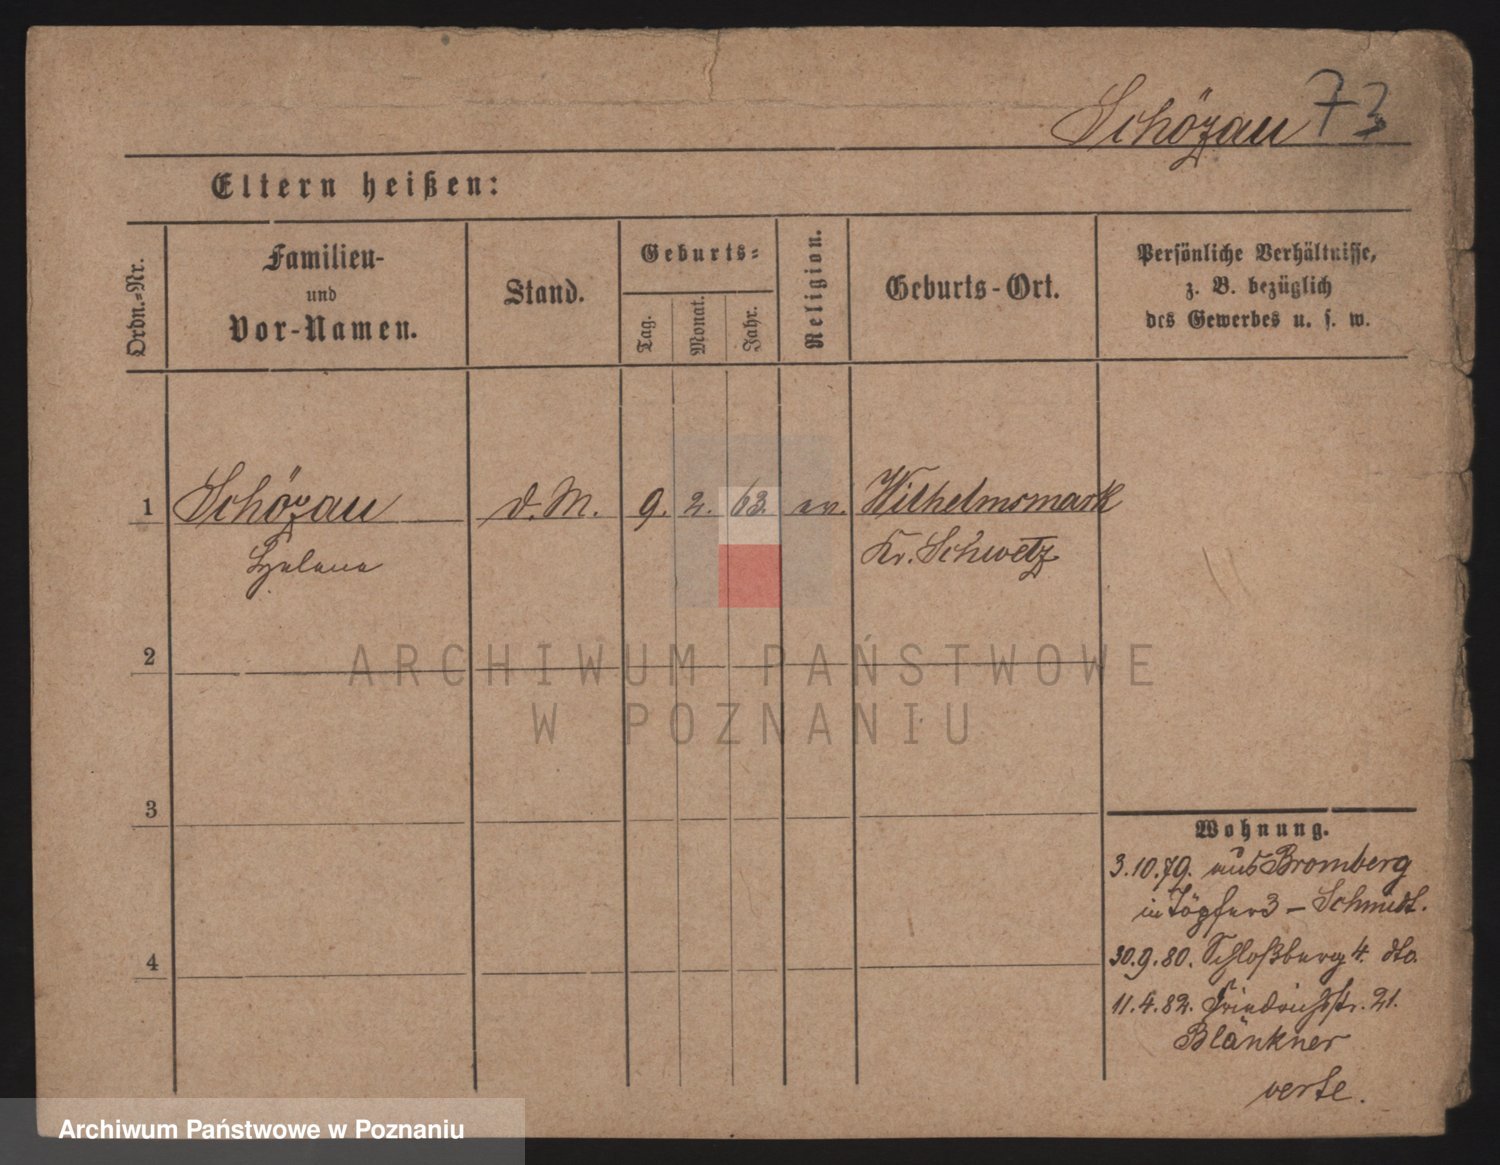 Schözau 73
Eltern heißen:
Ordn.=Nr.
Familien-
und
Vor-Namen.
Stand.
Geburts=
Tag.
Monat.
Jahr.
Religion.
Geburts-Ort.
Persönliche Verhältnisse,
z. B. bezüglich
des Gewerbes u. s. w.
1 Schözau d. M. 9. 2. 63. ev. Wilhelmsmark
Helene Kr. Schwetz
2
3
4
Wohnung.
3.10.79. aus Bromberg
in Töpfer 3 - Schmidt.
30.9.80. Schloßberg 4. dto.
11.4.82. Friedrichstr. 21.
Blänkner
verte.
ARCHIWUM PAŃSTWOWE
W POZNANIU
Archiwum Państwowe w Poznaniu